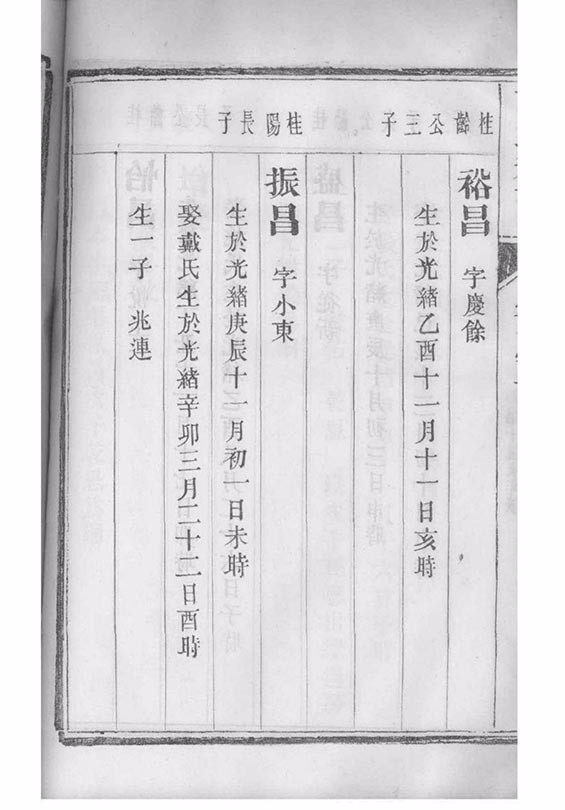 桂齡公三子
裕昌 字慶餘
生於光緒乙酉十一月十一日亥時
桂陽長子
振昌 字小東
生於光緒庚辰十一月初一日未時
娶戴氏生於光緒辛卯三月二十二日酉時
生一子 兆連